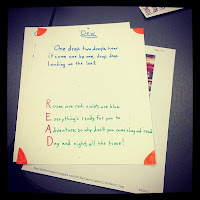 Dew
One drop, two drops, hear
it come one by one, drop, drop
landing on the leaf.
Roses are red, violets are blue.
Everything's ready for you to
Adventure, so why don't you come along and read
Day and night, all the time!